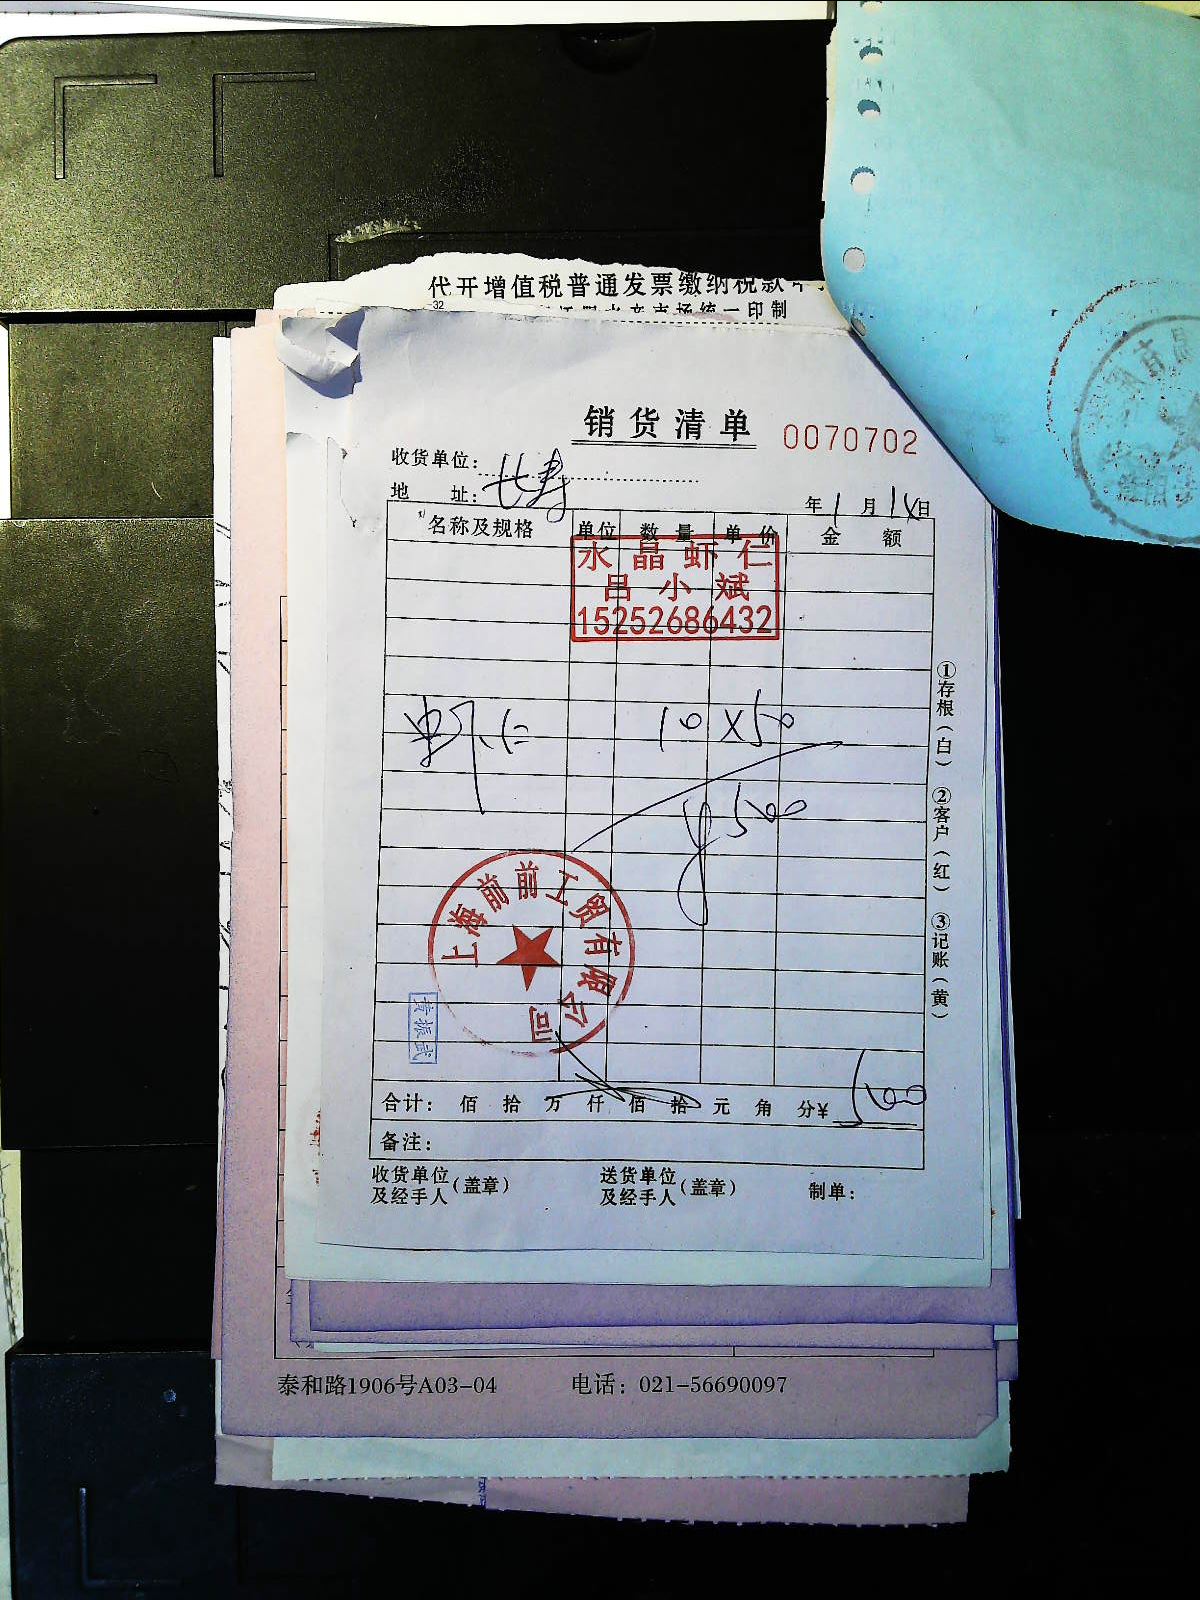 代开增值税普通发票缴纳税款
-32
水产市场统一印制
销货清单
0070702
收货单位：长寿
地 址：
年1月14日
名称及规格 单位 数量 单价 金额
水晶虾仁
吕小斌
15252686432
虾仁 10×50
¥500
上海前前工贸有限公司
黄振武
合计： 佰 拾 万 仟 佰 拾 元 角 分¥ 500
备注：
收货单位及经手人（盖章） 送货单位及经手人（盖章） 制单：
①存根（白） ②客户（红） ③记账（黄）
泰和路1906号A03-04 电话：021-56690097